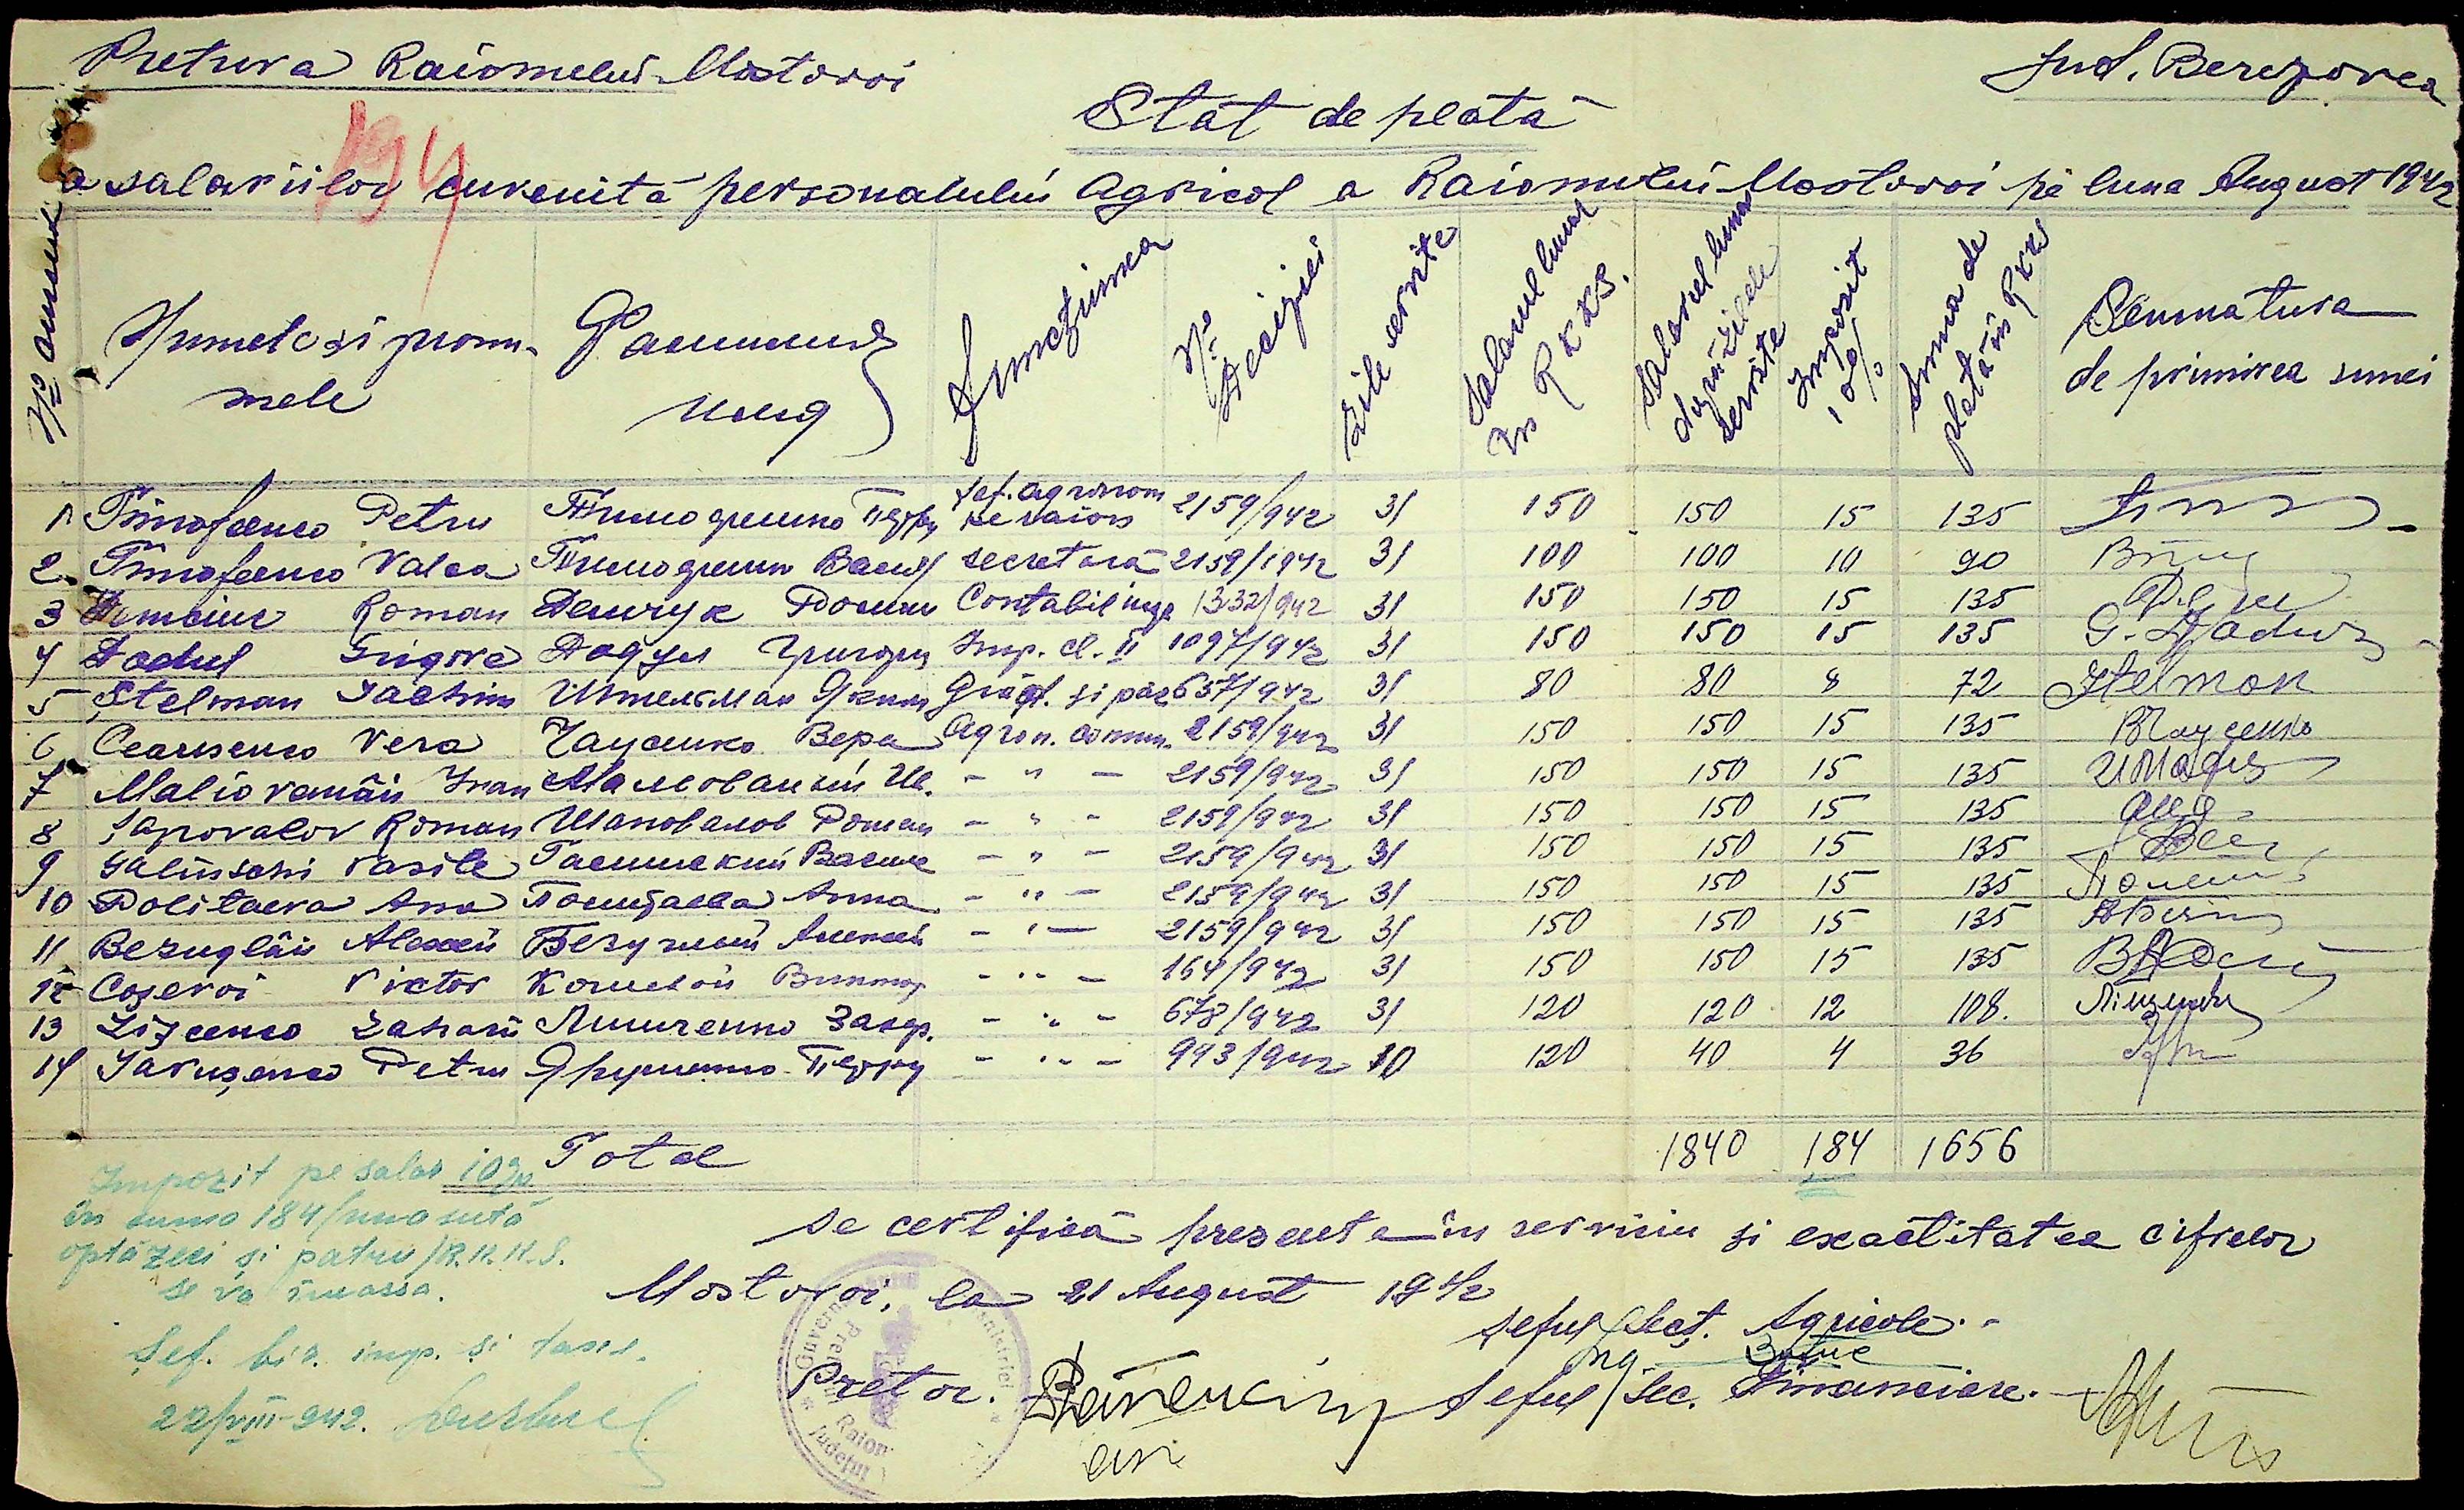 Pretura Raionului Mostovoi
Jud. Berezovca
Stat de plată
194
a salariilor cuvenită personalului Agricol a Raionului Mostovoi pe luna August 1942
No curent
Numele si pronumele
Фамилия
имя
Funcţiunea
No Deciziei
Zile servite
Salarul lunar în RKKS.
Salarul lunar după zilele servite
Impozit 10%
Suma de plată în RKKS
Semnatura
de primirea sumei
1 Timofeenco Petru Тимофеенко Петру Şef. agronom de raion 2159/942 31 150 150 15 135
2. Timofeenco Valea Тимофеенко secretară 2159/1942 31 100 100 10 90
3 Demciuc Roman Демчук Роман Contabil 1332/942 31 150 150 15 135
4 Dadul Grigore Дадул Григори Imp. cl. II 1097/942 31 150 150 15 135 G. Dadul
5 Ştelman Iachim Штельман Яким Grăjd. şi paz 657/942 31 80 80 8 72 Stelman
6 Ceausenco Vera Чаусенко Вера Agron. comun. 2159/942 31 150 150 15 135 ВЧаусенко
7 Maliovanâi Ivan Малёваный Ив. - " - 2159/942 31 150 150 15 135
8 Şapovalov Roman Шаповалов Роман - " - 2159/942 31 150 150 15 135
9 Galinschi Vasile Галинский Василе - " - 2159/942 31 150 150 15 135
10 Politaeva Ana Политаева Анна - " - 2159/942 31 150 150 15 135
11 Bezuglâi Alexei Безуглый Алексей - " - 2159/942 31 150 150 15 135
12 Coşevoi Victor Кошевой Виктор - " - 164/942 31 150 150 15 135
13 Lişcenco Zahar Лищенко Захар. - " - 678/942 31 120 120 12 108.
14 Iaruşenco Petru Ярушенко Петру - " - 993/942 10 120 40 4 36
Total 1840 184 1656
Impozit pe salar 10%
în suma 184/una sută
optăzeci şi patru/R.K.K.S.
se va încassa.
Se certifică prezenta în serviciu şi exactitatea cifrelor
Mostovoi, la 21 August 1942
Şeful Secţ. Agricole.
Ing.
Şef. bir. imp. şi taxe.
22/VIII-942.
Pretor.
Şeful Sec. Financiare.
Guvern
Pret
Raion
Judeţul